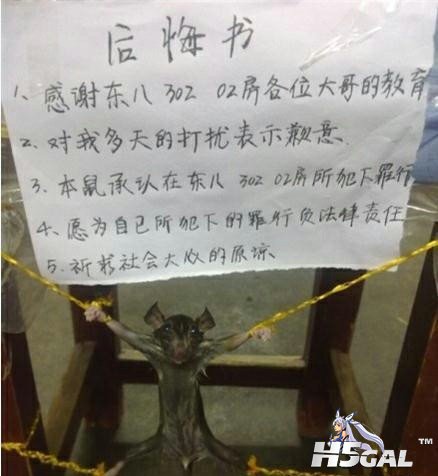 后悔书
1、感谢东八 302 02房各位大哥的教育
2、对我多天的打扰表示歉意.
3、本鼠承认在东八 302 02房所犯下罪行
4、愿为自己所犯下的罪行负法律责任
5、祈求社会大众的原谅.
H5GAL TM